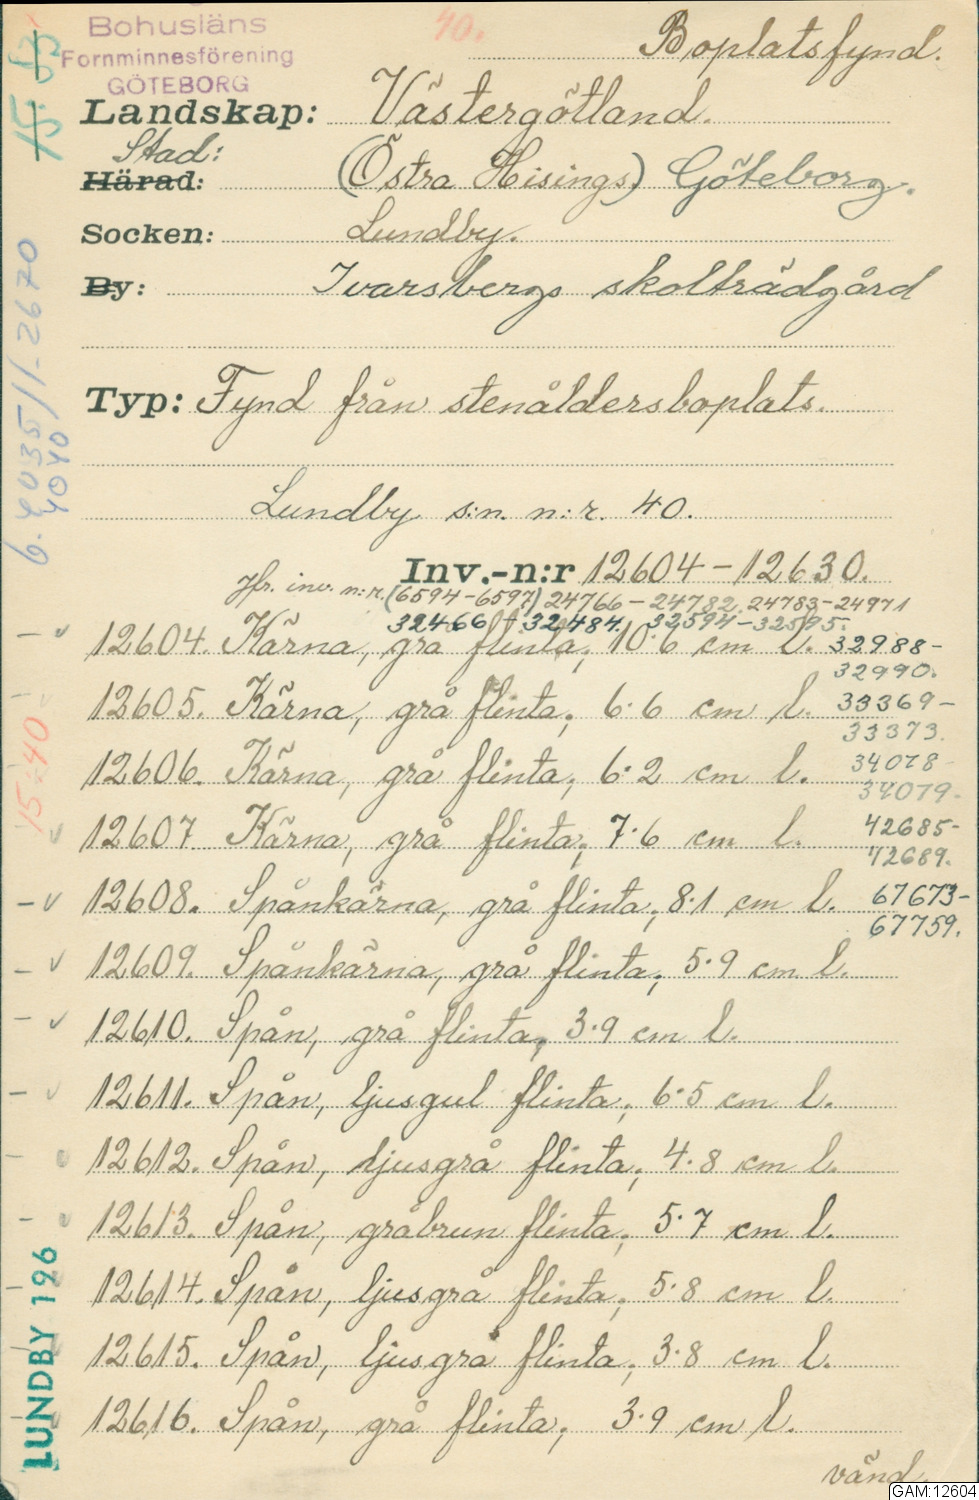 Bohusläns
Fornminnesförening
GÖTEBORG
40.
Boplatsfynd.
Landskap: Västergötland.
Stad:
Härad: (Östra Hisings) Göteborg.
Socken: Lundby.
By: Ivarsbergs skolträdgård
Typ: Fynd från stenåldersboplats.
Lundby s:n. n:r. 40.
Inv.-n:r 12604-12630.
Jfr. inv. n:r. (6594-6597) 24766-24782, 24783-24971
32466-32484, 32594-32595.
12604. Kärna, grå flinta; 10·6 cm l. 32988-
32990.
12605. Kärna, grå flinta; 6·6 cm l. 33369-
33373.
12606. Kärna, grå flinta; 6·2 cm l. 34078-
34079.
12607 Kärna, grå flinta; 7·6 cm l. 42685-
42689.
12608. Spånkärna, grå flinta; 8·1 cm l. 67673-
67759.
12609. Spånkärna, grå flinta; 5·9 cm l.
12610. Spån, grå flinta; 3·9 cm l.
12611. Spån, ljusgul flinta; 6·5 cm l.
12612. Spån, ljusgrå flinta; 4·8 cm l.
12613. Spån, gråbrun flinta; 5·7 cm l.
12614. Spån, ljusgrå flinta; 5·8 cm l.
12615. Spån, ljusgrå flinta; 3·8 cm l.
12616. Spån, grå flinta; 3·9 cm l.
vänd.
15:40
LUNDBY 196
GAM:12604